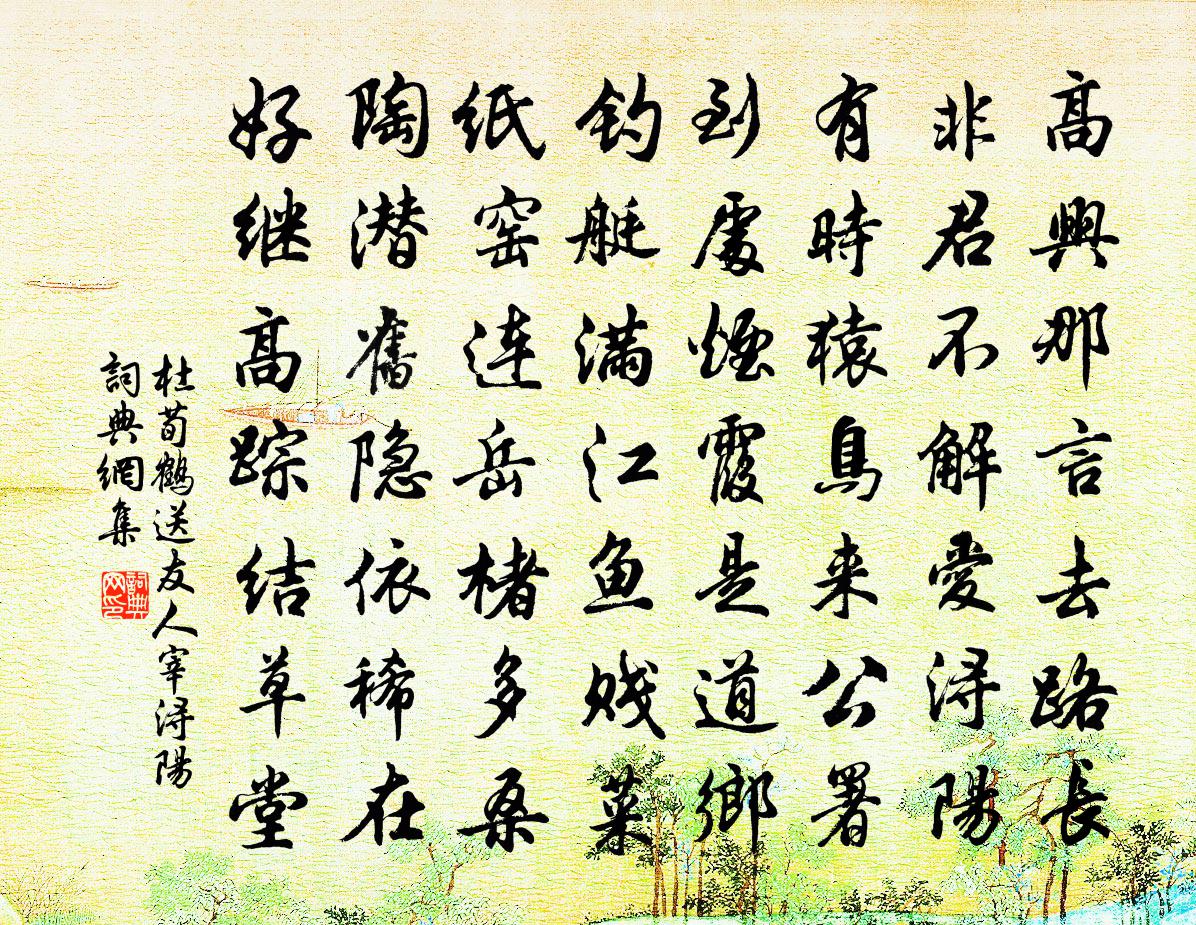 高興那言去路長
非君不解愛浔陽
有時猿鳥来公署
到處煙霞是道鄉
钓艇满江魚賤菜
纸窑連岳楮多桑
陶潜舊隐依稀在
好继高踪结草堂
杜荀鶴送友人宰浔陽
詞典網集
詞典網印